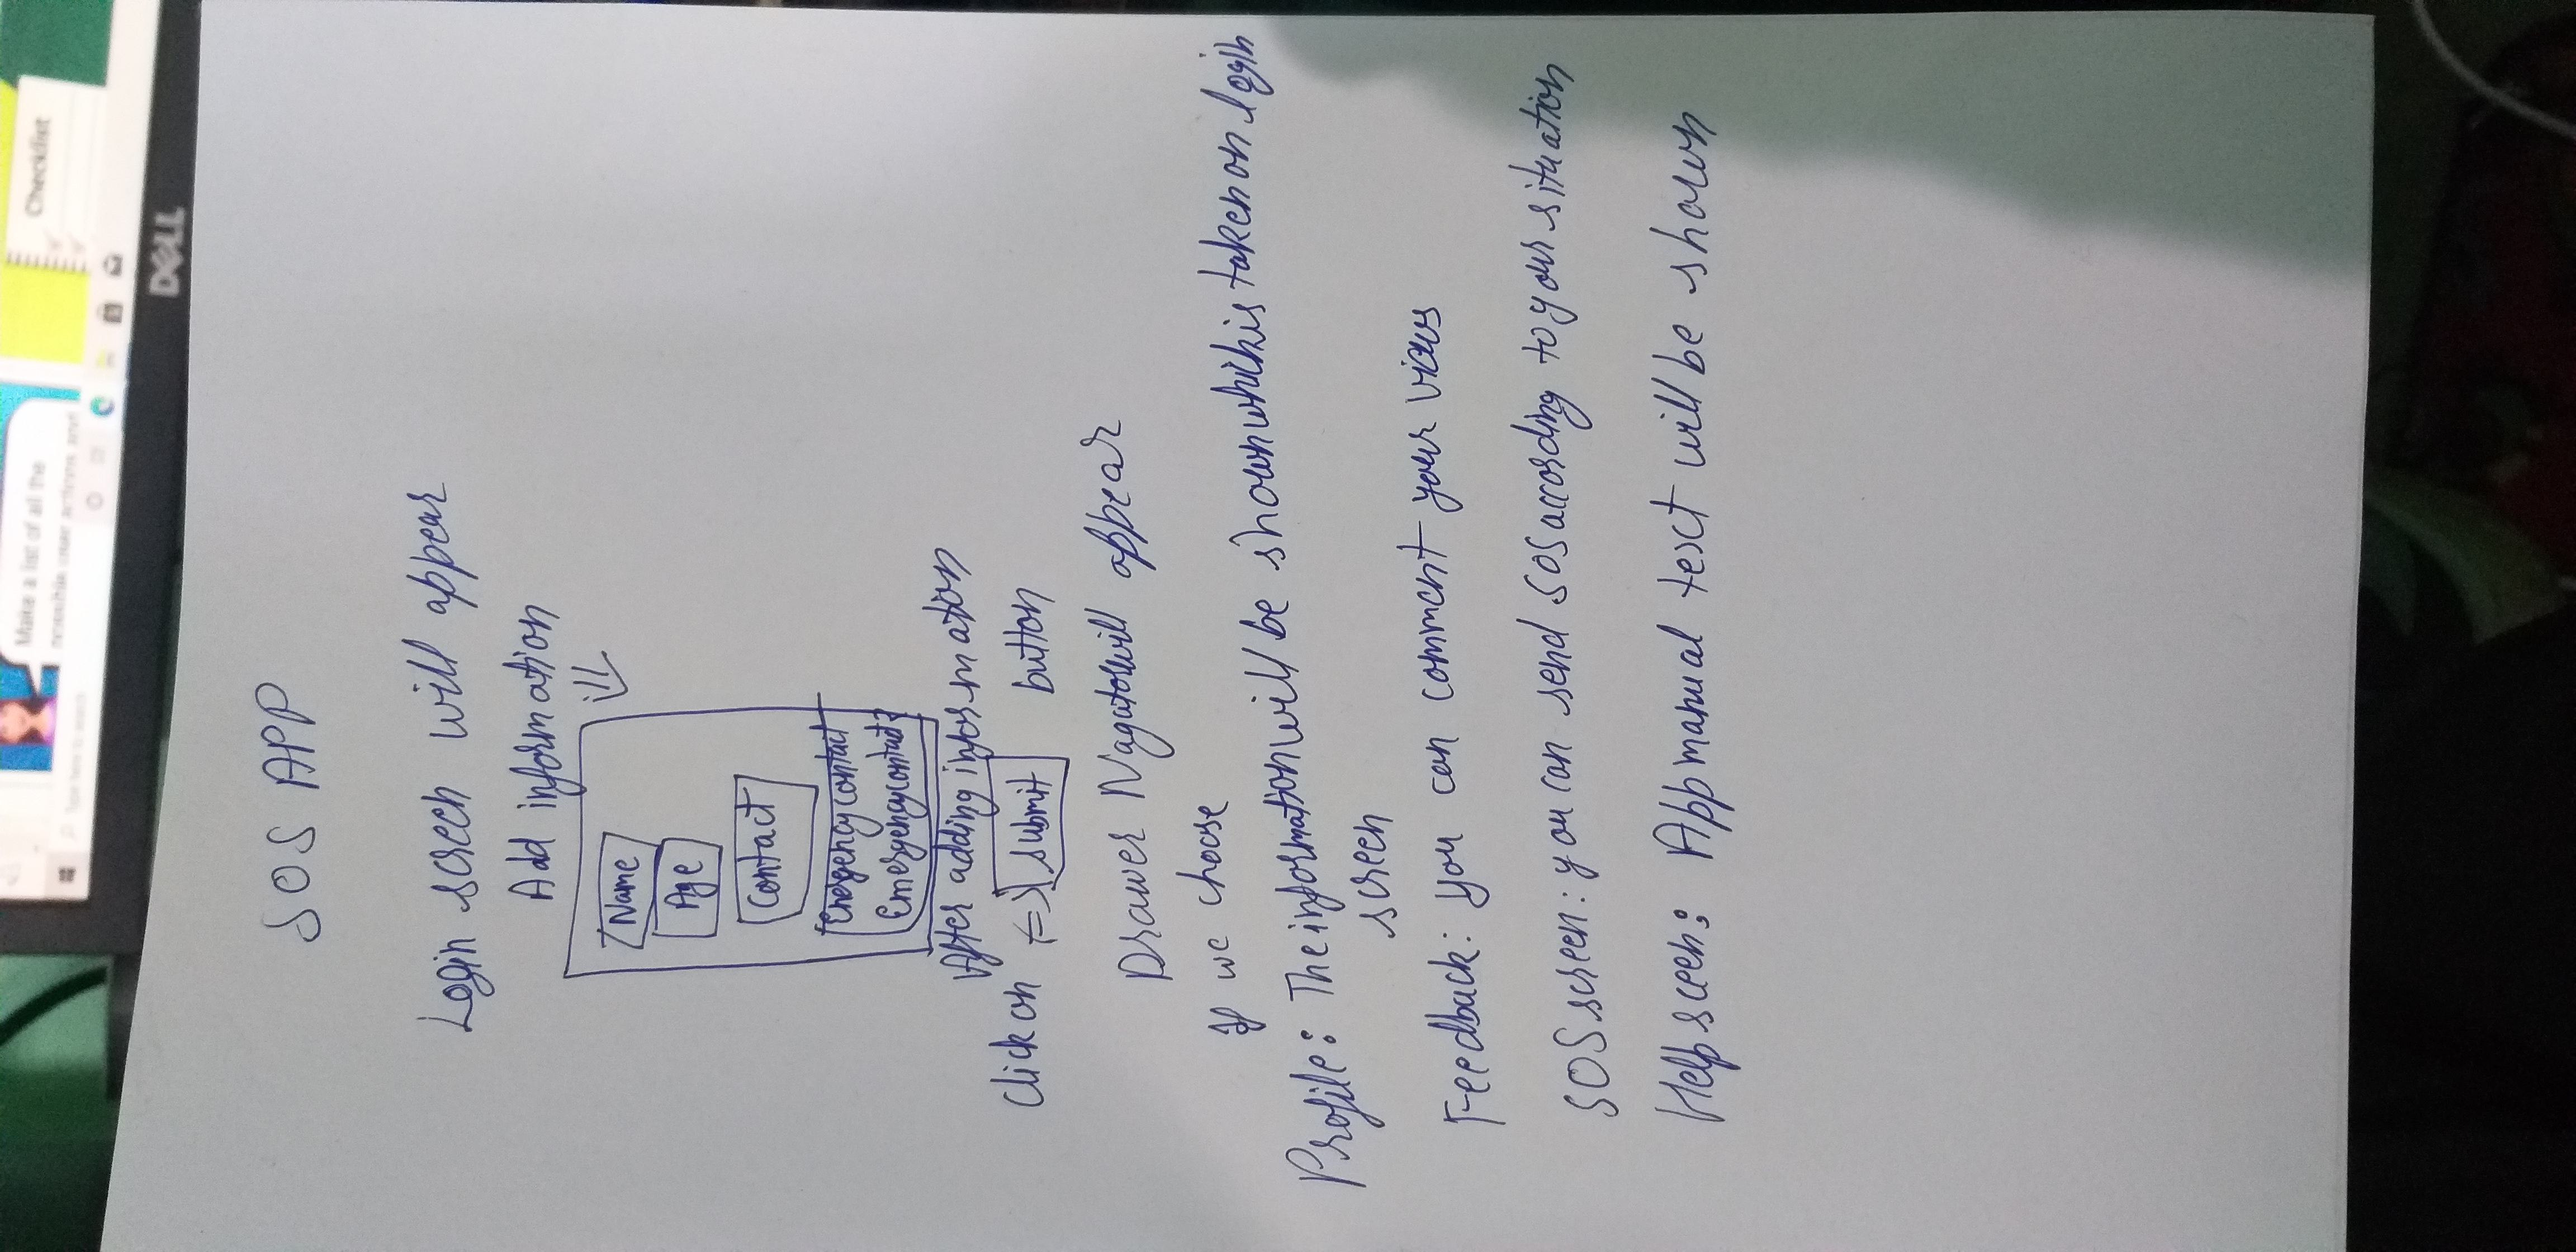 Make a list of all the
possible user actions and
Checklist
Type here to search
DELL
SOS APP
Login screen will appear
Add information
Name
Age
Contact
Emergency contact
Emergency contact 2
After adding information
Click on => submit button
Drawer Nagator will appear
If we choose
Profile: The information will be shown which is taken on login
screen
Feedback: you can comment your views
SOS screen: you can send SOS according to your situation
Help sceen: App manual text will be shown